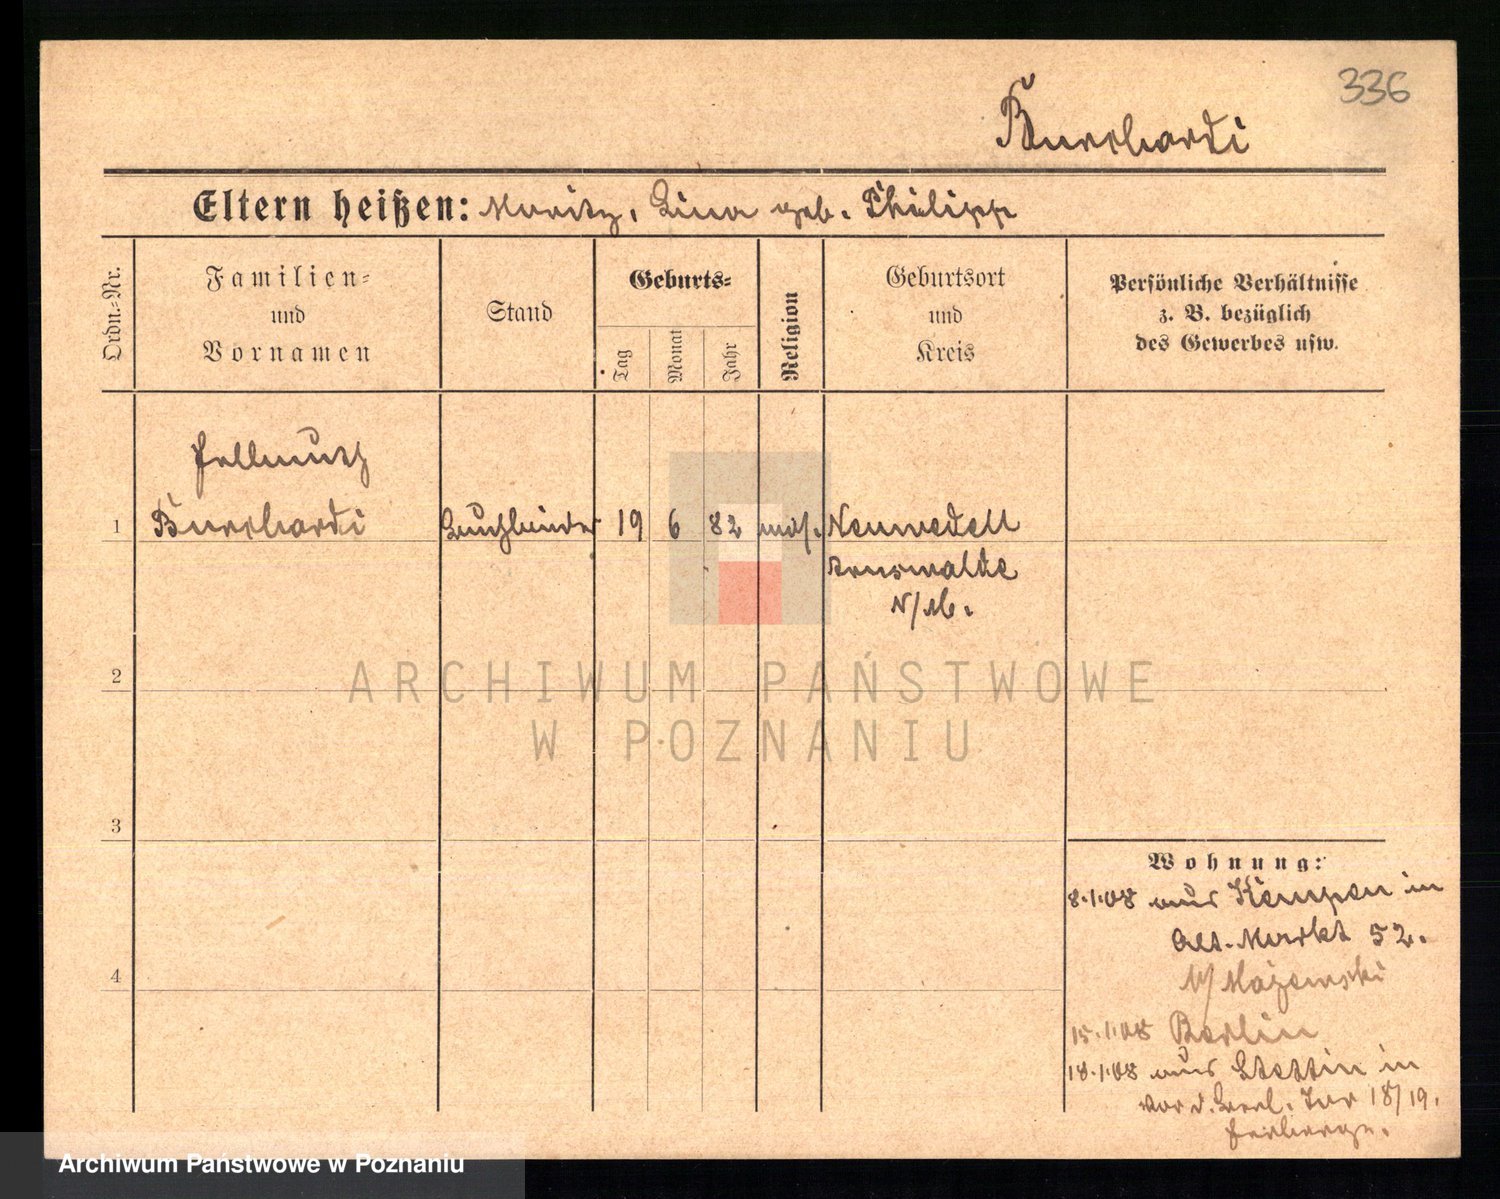 336
Burchardi
Eltern heißen: Moritz, Lina geb. Philipp
Ordn.-Nr.
Familien-
und
Vornamen
Stand
Geburts-
Tag
Monat
Jahr
Religion
Geburtsort
und
Kreis
Persönliche Verhältnisse
z. B. bezüglich
des Gewerbes usw.
Hellmuth
1 Burchardi Buchbinder 19 6 82 mos. Neuwedell
Arnswalde
N/M.
2
3
4
Wohnung:
8.1.08 aus Kempen in
Alt. Markt 52.
b/
15.1.08 Berlin
18.1.08 aus Stettin in
vor d. Berl. Tor 18/19.
Herberge.
ARCHIWUM PAŃSTWOWE
W POZNANIU
Archiwum Państwowe w Poznaniu